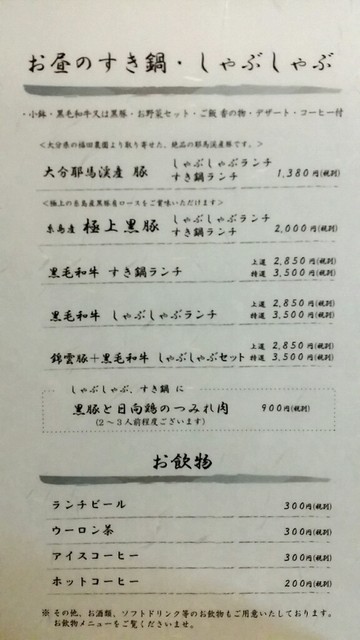 お昼のすき鍋・しゃぶしゃぶ
・小鉢・黒毛和牛又は黒豚・お野菜セット・ご飯 香の物・デザート・コーヒー付
<大分県の福田農園より取り寄せた、絶品の耶馬渓産豚です。>
大分耶馬渓産 豚 しゃぶしゃぶランチ
すき鍋ランチ 1,380円(税別)
<極上の糸島産黒豚肩ロースをご賞味いただけます>
糸島産 極上黒豚 しゃぶしゃぶランチ
すき鍋ランチ 2,000円(税別)
黒毛和牛 すき鍋ランチ 上選 2,850円(税別)
特選 3,500円(税別)
黒毛和牛 しゃぶしゃぶランチ 上選 2,850円(税別)
特選 3,500円(税別)
錦雲豚+黒毛和牛 しゃぶしゃぶセット 上選 2,850円(税別)
特選 3,500円(税別)
しゃぶしゃぶ、すき鍋 に
黒豚と日向鶏のつみれ肉 900円(税別)
(2~3人前程度ございます)
お飲物
ランチビール 300円(税別)
ウーロン茶 300円(税別)
アイスコーヒー 300円(税別)
ホットコーヒー 200円(税別)
※その他、お酒類、ソフトドリンク等のお飲物もご用意いたしております。
お飲物メニューをご覧くださいませ。